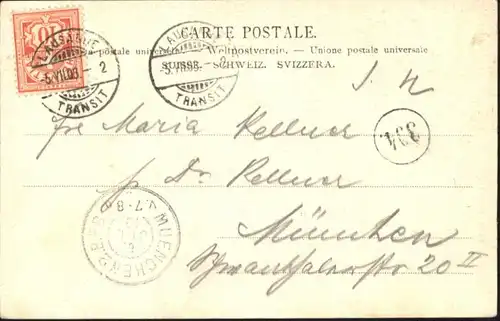 CARTE POSTALE.
postale universelle — Weltpostverein. — Unione postale universale
SUISSE. SCHWEIZ. SVIZZERA.
10
LAUSANNE
5.VII.06 – 2
TRANSIT
LAUSANNE
5.VII.06 – 2
TRANSIT
Maria Kellner
Dr Kellner
München
20 II
334
MUENCHEN 2 B.P.
V. 7-8